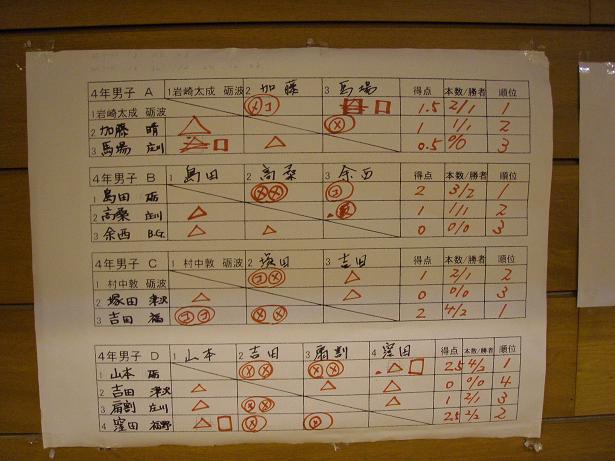 4年男子 A 1岩崎太成 砺波 2 加藤 3 馬場 得点 本数/勝者 順位
1岩崎太成 砺波 メコ 1.5 2/1 1
2 加藤 晴 △ メ 1 1/1 2
3 馬場 庄川 △ 0.5 0/0 3
4年男子 B 1 島田 2 高桑 3 余西 得点 本数/勝者 順位
1 島田 砺 メメ コ 2 3/2 1
2 高桑 庄川 △ 1 1/1 2
3 余西 B.G. △ △ 0 0/0 3
4年男子 C 1 村中敦 砺波 2 塚田 3 吉田 得点 本数/勝者 順位
1 村中敦 砺波 コメ △ 1 2/1 2
2 塚田 津沢 △ △ 0 0/0 3
3 吉田 福 ココ メメ 2 4/2 1
4年男子 D 1 山本 2 吉田 3 扇割 4 窪田 得点 本数/勝者 順位
1 山本 砺 メメ メメ △ 2.5 4/2 1
2 吉田 津沢 △ △ △ 0 0/0 4
3 扇割 庄川 △ メメ △ 1 2/1 3
4 窪田 福野 △ メ メ 2.5 2/2 2